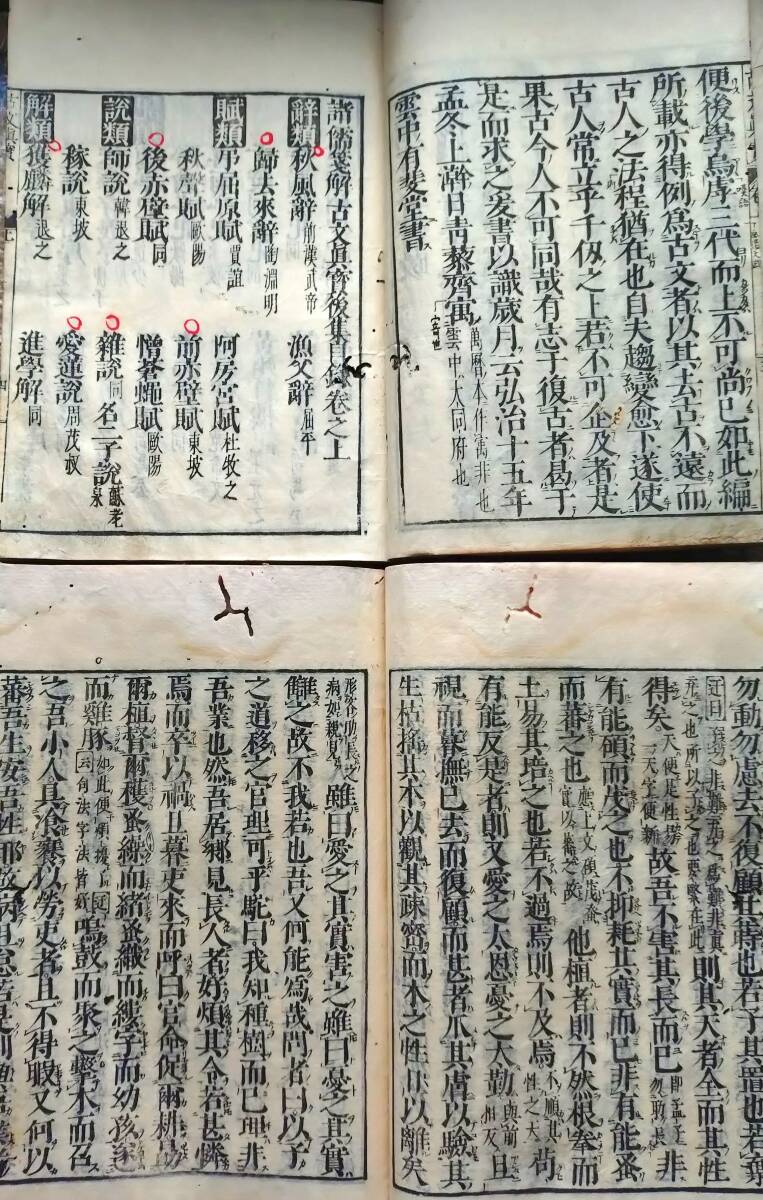 便後學烏虖三代而上不可尚已如此編
所載亦得例爲古文者以其去古不遠而
古人之法程猶在也自夫趨變愈下遂使
古人常立乎千仭之上若不可企及者是
果古今人不可同哉有志于復古者曷于
是而求之爰書以識歲月云弘治十五年
孟冬上澣日靑藜齋寓萬曆本作寓非也
雲中有斐堂書雲中大同府也
諸儒箋解古文眞寶後集目錄卷之上
辭類
秋風辭前漢武帝 漁父辭屈平
歸去來辭陶淵明
賦類
弔屈原賦賈誼 阿房宮賦杜牧之
秋聲賦歐陽 前赤壁賦東坡
後赤壁賦同 憎蒼蠅賦歐陽
說類
師說韓退之 雜說同 名二子說蘇老泉
稼說東坡 愛蓮說周茂叔
解類
獲麟解退之 進學解同
勿動勿慮去不復顧其蒔也若子其置也若棄
則其天者全而其性
得矣天便是性 故吾不害其長而已 非
有能碩而茂之也不抑耗其實而已非有能蚤
而蕃之也應上文碩茂蚤實以蕃之故 他植者則不然根拳而
土易其培之也若不過焉則不及焉不順其性之天 苟
有能反是者則又愛之太恩憂之太勤與前相反 且
視而暮撫已去而復顧而甚者爪其膚以驗其
生枯搖其本以觀其疎密而木之性日以離矣
雖曰愛之其實害之雖曰憂之其實
讎之故不我若也吾又何能爲哉問者曰以子
之道移之官理可乎駝曰我知種樹而已理非
吾業也然吾居鄕見長人者好煩其令若甚憐
焉而卒以禍旦暮吏來而呼曰官命促爾耕勗
爾植督爾穫蚤繰而緖蚤織而縷字而幼孩遂
而雞豚 鳴鼓而聚之擊木而召
之吾小人具飧饔以勞吏者且不得暇又何以
蕃吾生安吾性耶故病且怠若是則